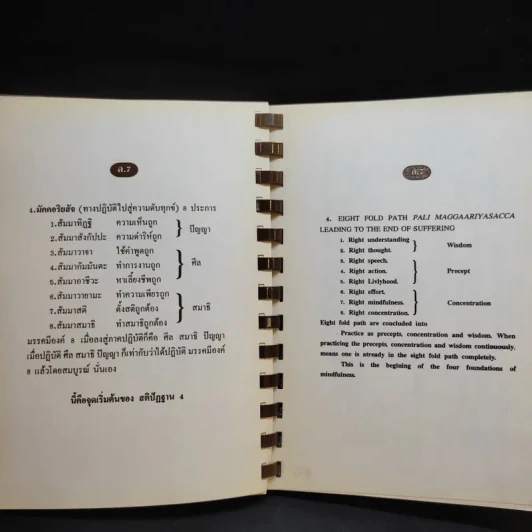 อ.7
4.มัคคอริยสัจ (ทางปฏิบัติไปสู่ความดับทุกข์) 8 ประการ
1.สัมมาทิฏฐิ ความเห็นถูก
2.สัมมาสังกัปปะ ความดำริห์ถูก
ปัญญา
3.สัมมาวาจา ใช้คำพูดถูก
4.สัมมากัมมันตะ ทำการงานถูก
5.สัมมาอาชีวะ หาเลี้ยงชีพถูก
ศีล
6.สัมมาวายามะ ทำความเพียรถูก
7.สัมมาสติ ตั้งสติถูกต้อง
8.สัมมาสมาธิ ทำสมาธิถูกต้อง
สมาธิ
มรรคมีองค์ 8 เมื่อลงสู่ภาคปฏิบัติก็คือ ศีล สมาธิ ปัญญา
เมื่อปฏิบัติ ศีล สมาธิ ปัญญา ก็เท่ากับว่าได้ปฏิบัติ มรรคมีองค์
8 แล้วโดยสมบูรณ์ นั่นเอง
นี้คือจุดเริ่มต้นของ สติปัฏฐาน 4
อ.7
4. EIGHT FOLD PATH PALI MAGGAARIYASACCA
LEADING TO THE END OF SUFFERING
1. Right understanding
2. Right thought.
Wisdom
3. Right speech.
4. Right action.
5. Right Livlyhood.
Precept
6. Right effort.
7. Right mindfulness.
8. Right concentration.
Concentration
Eight fold path are concluded into
Practice as precepts, concentration and wisdom. When
practicing the precepts, concentration and wisdom continuously,
means one is stready in the eight fold path completely.
This is the begining of the four foundations of
mindfulness.